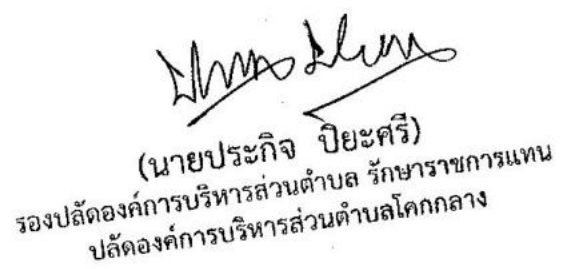 (นายประกิจ ปิยะศรี)
รองปลัดองค์การบริหารส่วนตำบล รักษาราชการแทน
ปลัดองค์การบริหารส่วนตำบลโคกกลาง